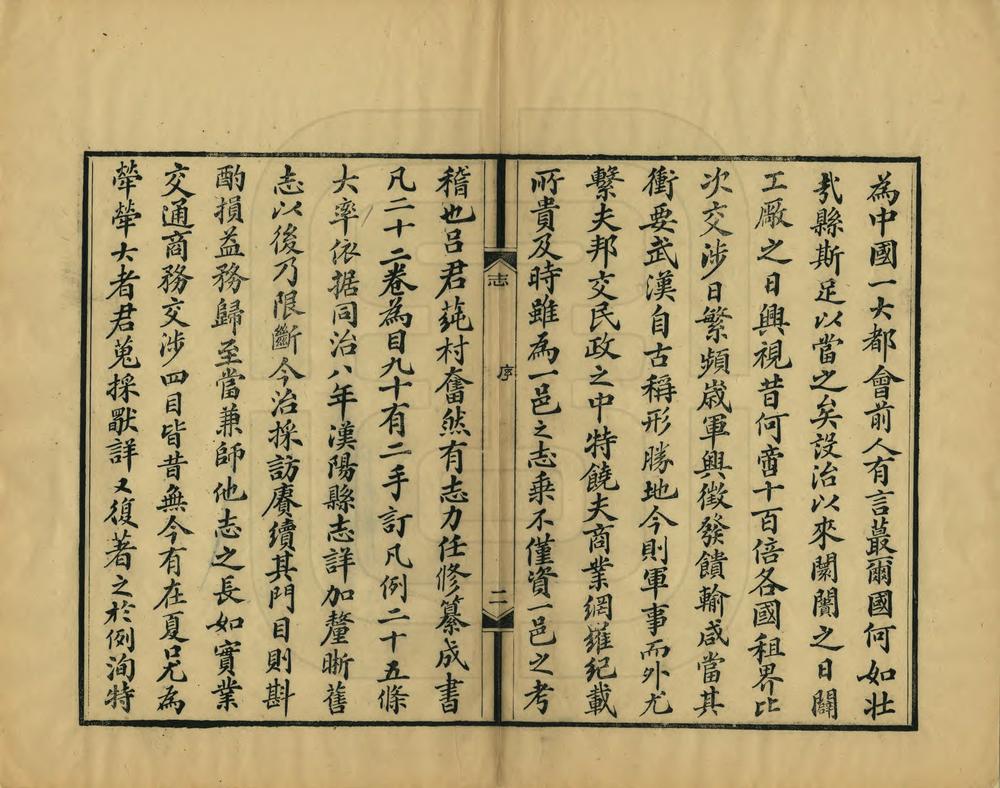 為中國一大都會前人有言蕞爾國何如壯
哉縣斯足以當之矣設治以來闤闠之日闢
工廠之日興視昔何啻十百倍各國租界比
次交涉日繁頻歲軍興徵發饋輸咸當其
衝要武漢自古稱形勝地今則軍事而外尤
繫夫邦交民政之中特饒夫商業網羅紀載
所貴及時雖為一邑之志乘不僅資一邑之考
志
序
二
稽也呂君蒓村奮然有志力任修纂成書
凡二十二卷為目九十有二手訂凡例二十五條
大率依据同治八年漢陽縣志詳加釐晰舊
志以後乃限斷今治採訪賡續其門目則斟
酌損益務歸至當兼師他志之長如實業
交通商務交涉四目皆昔無今有在夏口尤為
犖犖大者君蒐採猒詳又復著之於例洵特